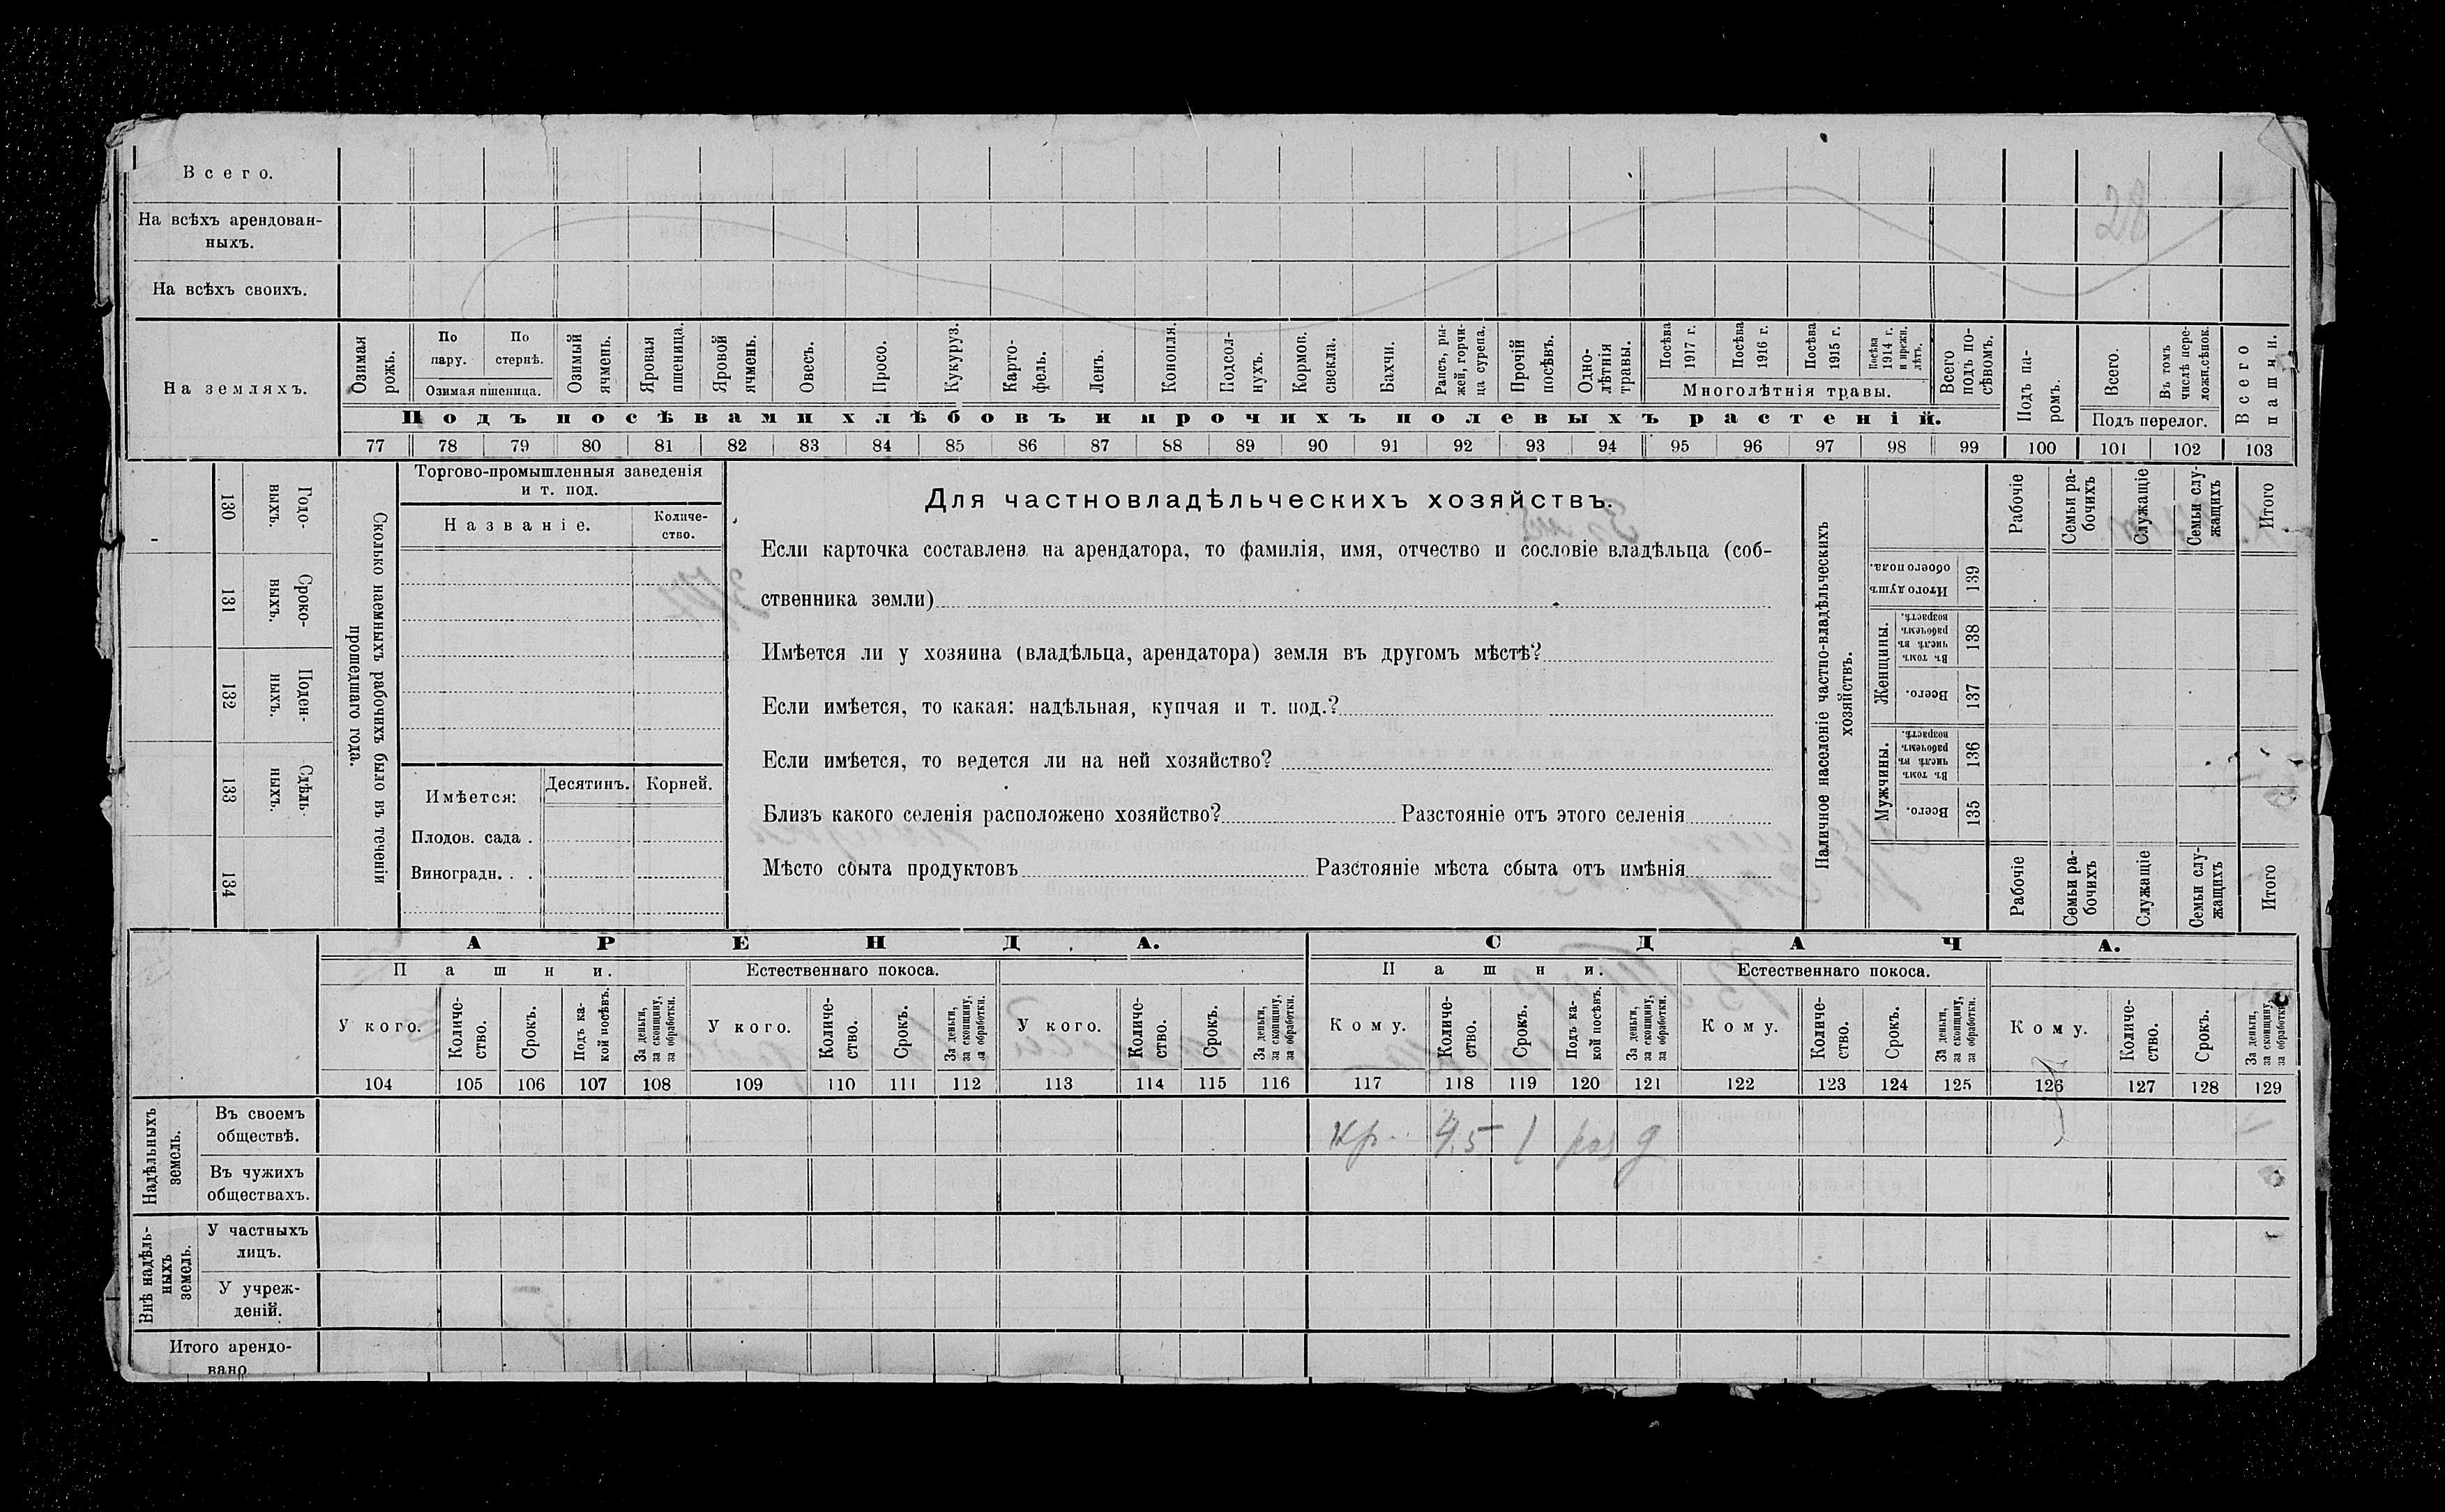 Всего.
28
На всѣхъ арендован-
ныхъ.
На всѣхъ своихъ.
На земляхъ.
Озимая рожь.
По пару.
По стернѣ.
Озимая пшеница.
Озимый ячмень.
Яровая пшеница.
Яровой ячмень.
Овесъ.
Просо.
Кукуруз.
Карто-
фель.
Ленъ.
Конопля.
Подсол-
нухъ.
Кормов. свекла.
Бахчи.
Рапсъ, ры-
жей, горчи-
ца сурепа.
Прочій посѣвъ.
Одно-
лѣтнія травы.
Посѣва 1917 г.
Посѣва 1916 г.
Посѣва 1915 г.
Посѣва 1914 г. и прежн. лѣтъ.
Многолѣтнія травы.
Всего подъ по-
сѣвомъ.
Подъ посѣвами хлѣбовъ и прочихъ полевыхъ растеній.
Подъ па-
ромъ.
Всего.
Въ томъ числѣ пере-
ложн.сѣнок.
Подъ перелог.
Всего пашни.
77 78 79 80 81 82 83 84 85 86 87 88 89 90 91 92 93 94 95 96 97 98 99 100 101 102 103
130 Годо-
выхъ.
131 Сроко-
выхъ.
132 Поден-
ныхъ.
133 Сдѣль-
ныхъ.
134
Сколько наемныхъ рабочихъ было въ теченіи
прошедшаго года.
Торгово-промышленныя заведенія
и т. под.
Названіе.
Количе-
ство.
Имѣется:
Десятинъ. Корней.
Плодов. сада .
Виноградн. . .
Для частновладѣльческихъ хозяйствъ.
Если карточка составлена на арендатора, то фамилія, имя, отчество и сословіе владѣльца (соб-
ственника земли)
Имѣется ли у хозяина (владѣльца, арендатора) земля въ другомъ мѣстѣ?
Если имѣется, то какая: надѣльная, купчая и т. под.?
Если имѣется, то ведется ли на ней хозяйство?
Близъ какого селенія расположено хозяйство? Разстояніе отъ этого селенія
Мѣсто сбыта продуктовъ Разстояніе мѣста сбыта отъ имѣнія
Наличное населеніе частно-владѣльческихъ
хозяйствъ.
Рабочіе
Семьи ра-
бочихъ
Служащіе
Семьи слу-
жащихъ
Итого
Итого душъ обоего пола. 139
Женщины.
Въ томъ числѣ въ рабочемъ возрастѣ. 138
Всего. 137
Мужчины.
Въ томъ числѣ въ рабочемъ возрастѣ. 136
Всего. 135
Рабочіе
Семьи ра-
бочихъ
Служащіе
Семьи слу-
жащихъ
Итого
АРЕНДА.
СДАЧА.
Пашни.
Естественнаго покоса.
Пашни.
Естественнаго покоса.
У кого.
Количе-
ство.
Срокъ.
Подъ ка-
кой посѣвъ.
За деньги,
за скопщину,
за обработки.
У кого.
Количе-
ство.
Срокъ.
За деньги,
за скопщину,
за обработки.
У кого.
Количе-
ство.
Срокъ.
За деньги,
за скопщину,
за обработки.
Кому.
Количе-
ство.
Срокъ.
Подъ ка-
кой посѣвъ.
За деньги,
за скопщину,
за обработки.
Кому.
Количе-
ство.
Срокъ.
За деньги,
за скопщину,
за обработки.
Кому.
Количе-
ство.
Срокъ.
За деньги,
за скопщину,
за обработки.
104 105 106 107 108 109 110 111 112 113 114 115 116 117 118 119 120 121 122 123 124 125 126 127 128 129
Надѣльныхъ
земель.
Въ своемъ
обществѣ.
кр. 4.5 1 раз д
Въ чужихъ
обществахъ.
Внѣ надѣль-
ныхъ
земель.
У частныхъ
лицъ.
У учреж-
деній.
Итого арендо-
вано